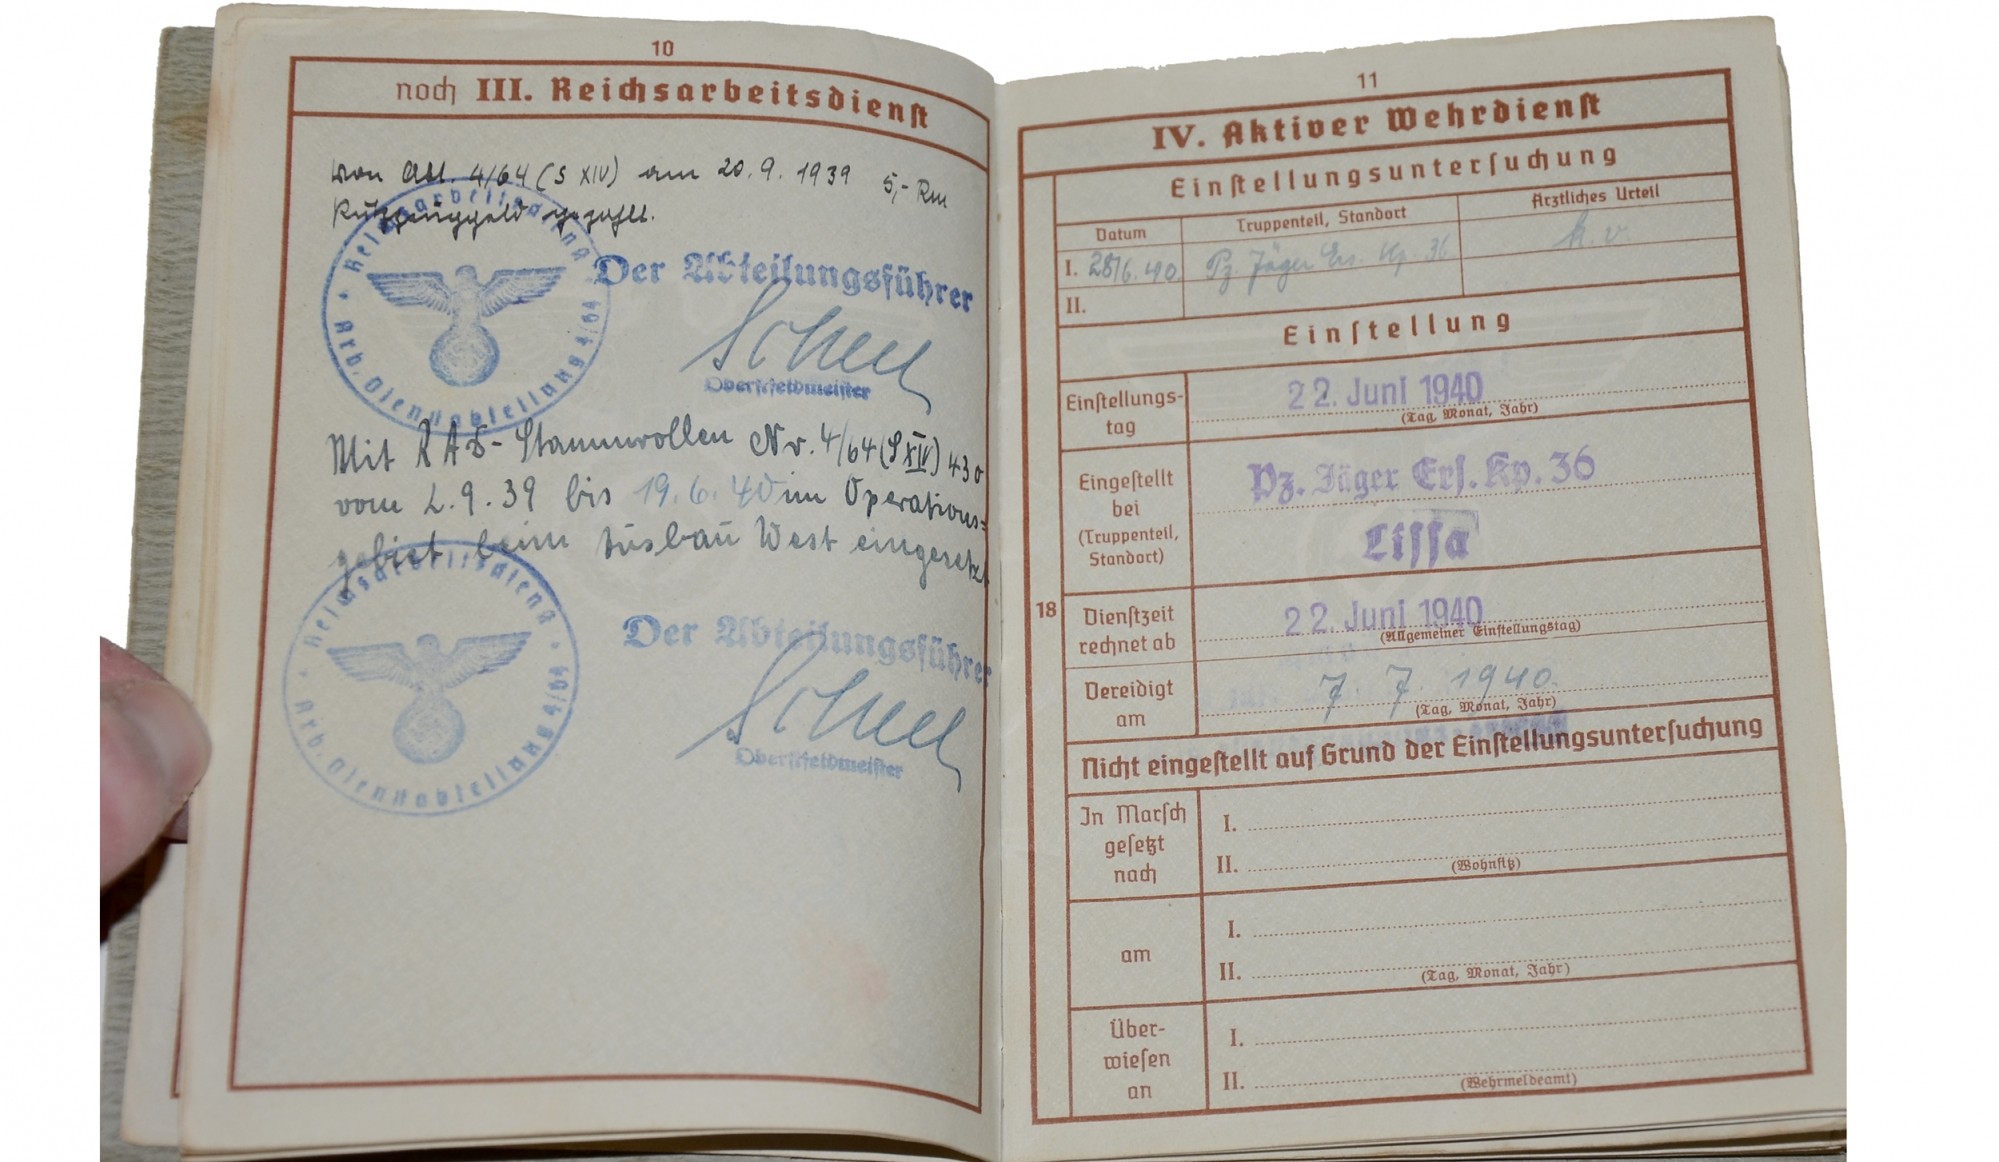 10
noch III. Reichsarbeitsdienst
von Abt. 4/64 (S XIV) am 20.9.1939 5,- Rm
Putzzeuggeld gezahlt.
Reichsarbeitsdienst
Arb. Dienstabteilung 4/64
Der Abteilungsführer
Oberstfeldmeister
Mit RAD-Stammrollen Nr. 4/64 (S XIV) 430
vom 2.9.39 bis 19.6.40 im Operations=
gebiet beim Ausbau West eingesetzt
Reichsarbeitsdienst
Arb. Dienstabteilung 4/64
Der Abteilungsführer
Oberstfeldmeister
11
IV. Aktiver Wehrdienst
Einstellungsuntersuchung
Datum Truppenteil, Standort Ärztliches Urteil
I. 28/6.40. Pz. Jäger Ers. Kp. 36 k.v.
II.
Einstellung
Einstellungs-
tag
22. Juni 1940
(Tag, Monat, Jahr)
Eingestellt
bei
(Truppenteil,
Standort)
Pz. Jäger Ers. Kp. 36
Lissa
18
Dienstzeit
rechnet ab
22. Juni 1940
(Allgemeiner Einstellungstag)
Vereidigt
am
7. 7. 1940.
(Tag, Monat, Jahr)
Nicht eingestellt auf Grund der Einstellungsuntersuchung
In Marsch
gesetzt
nach
I.
II.
(Wohnsitz)
am
I.
II.
(Tag, Monat, Jahr)
Über-
wiesen
an
I.
II.
(Wehrmeldeamt)